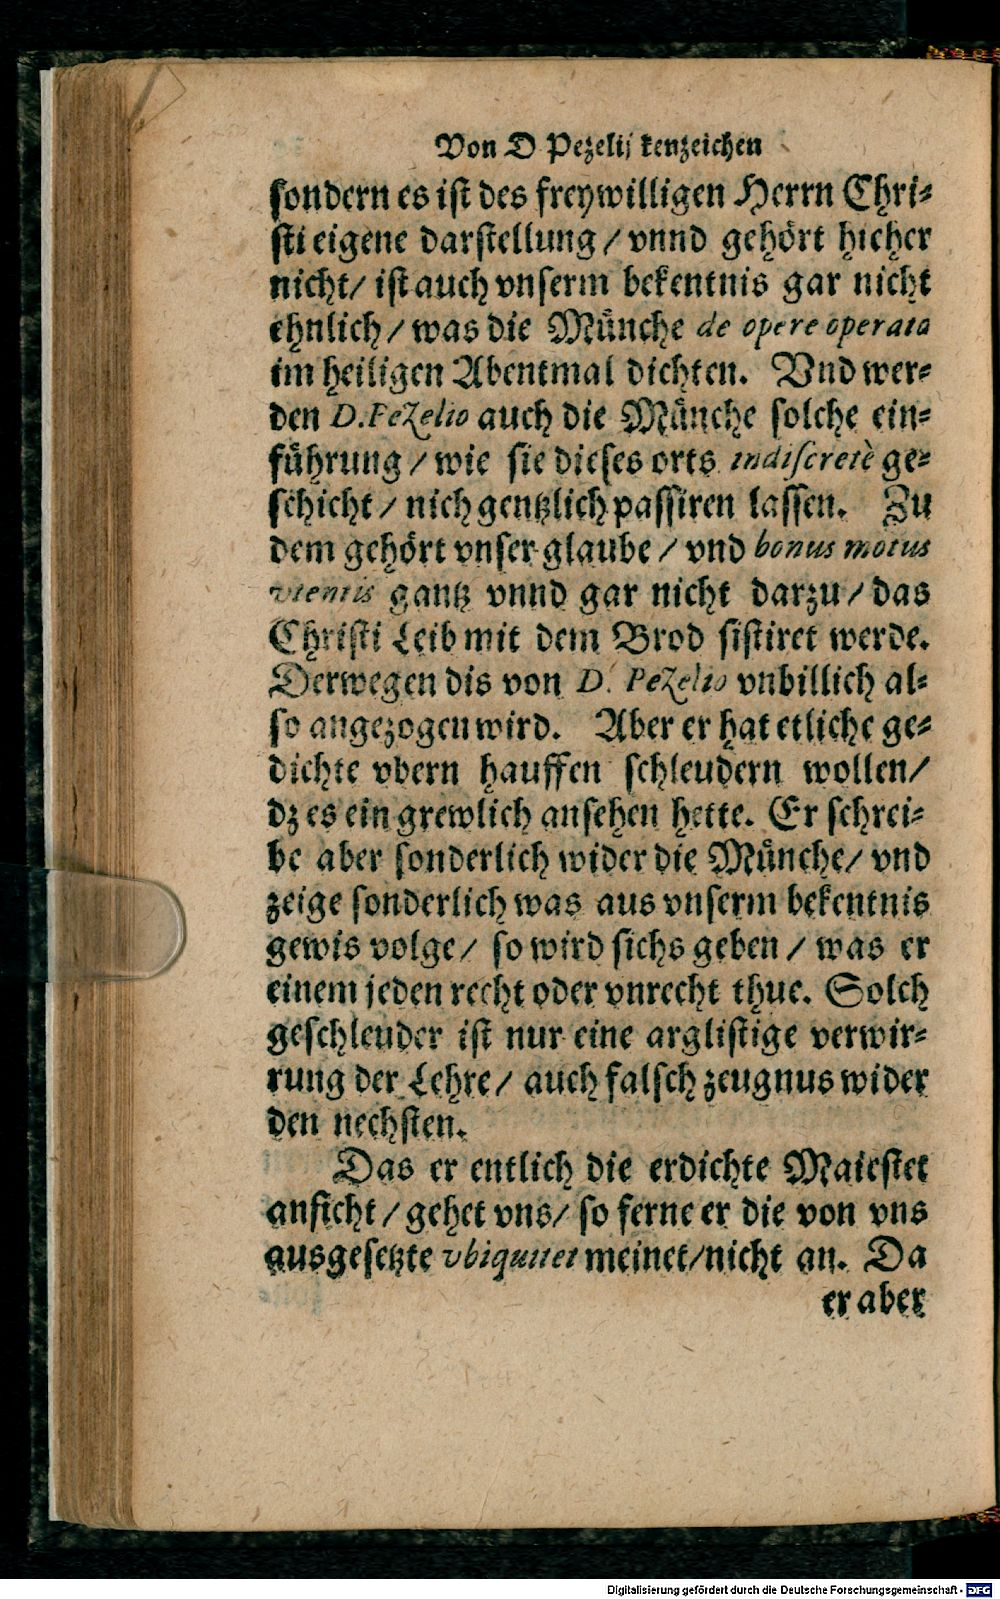 Von D Pezelij kenzeichen
sondern es ist des freywilligen Herrn Chri-
sti eigene darstellung / vnnd gehört hieher
nicht / ist auch vnserm bekentnis gar nicht
ehnlich / was die Münche de opere operato
im heiligen Abentmal dichten. Vnd wer-
den D. Pezelio auch die Münche solche ein-
führung / wie sie dieses orts indiscretè ge-
schicht / nich gentzlich passiren lassen. Zu
dem gehört vnser glaube / vnd bonus motus
vtentis gantz vnnd gar nicht darzu / das
Christi Leib mit dem Brod sistiret werde.
Derwegen dis von D. Pezelio vnbillich al-
so angezogen wird. Aber er hat etliche ge-
dichte vbern hauffen schleudern wollen /
dz es ein grewlich ansehen hette. Er schrei-
be aber sonderlich wider die Münche / vnd
zeige sonderlich was aus vnserm bekentnis
gewis volge / so wird sichs geben / was er
einem jeden recht oder vnrecht thue. Solch
geschleuder ist nur eine arglistige verwir-
rung der Lehre / auch falsch zeugnus wider
den nechsten.
Das er entlich die erdichte Maiestet
anficht / gehet vns / so ferne er die von vns
ausgesetzte vbiquitet meinet / nicht an. Da
er aber
Digitalisierung gefördert durch die Deutsche Forschungsgemeinschaft - DFG